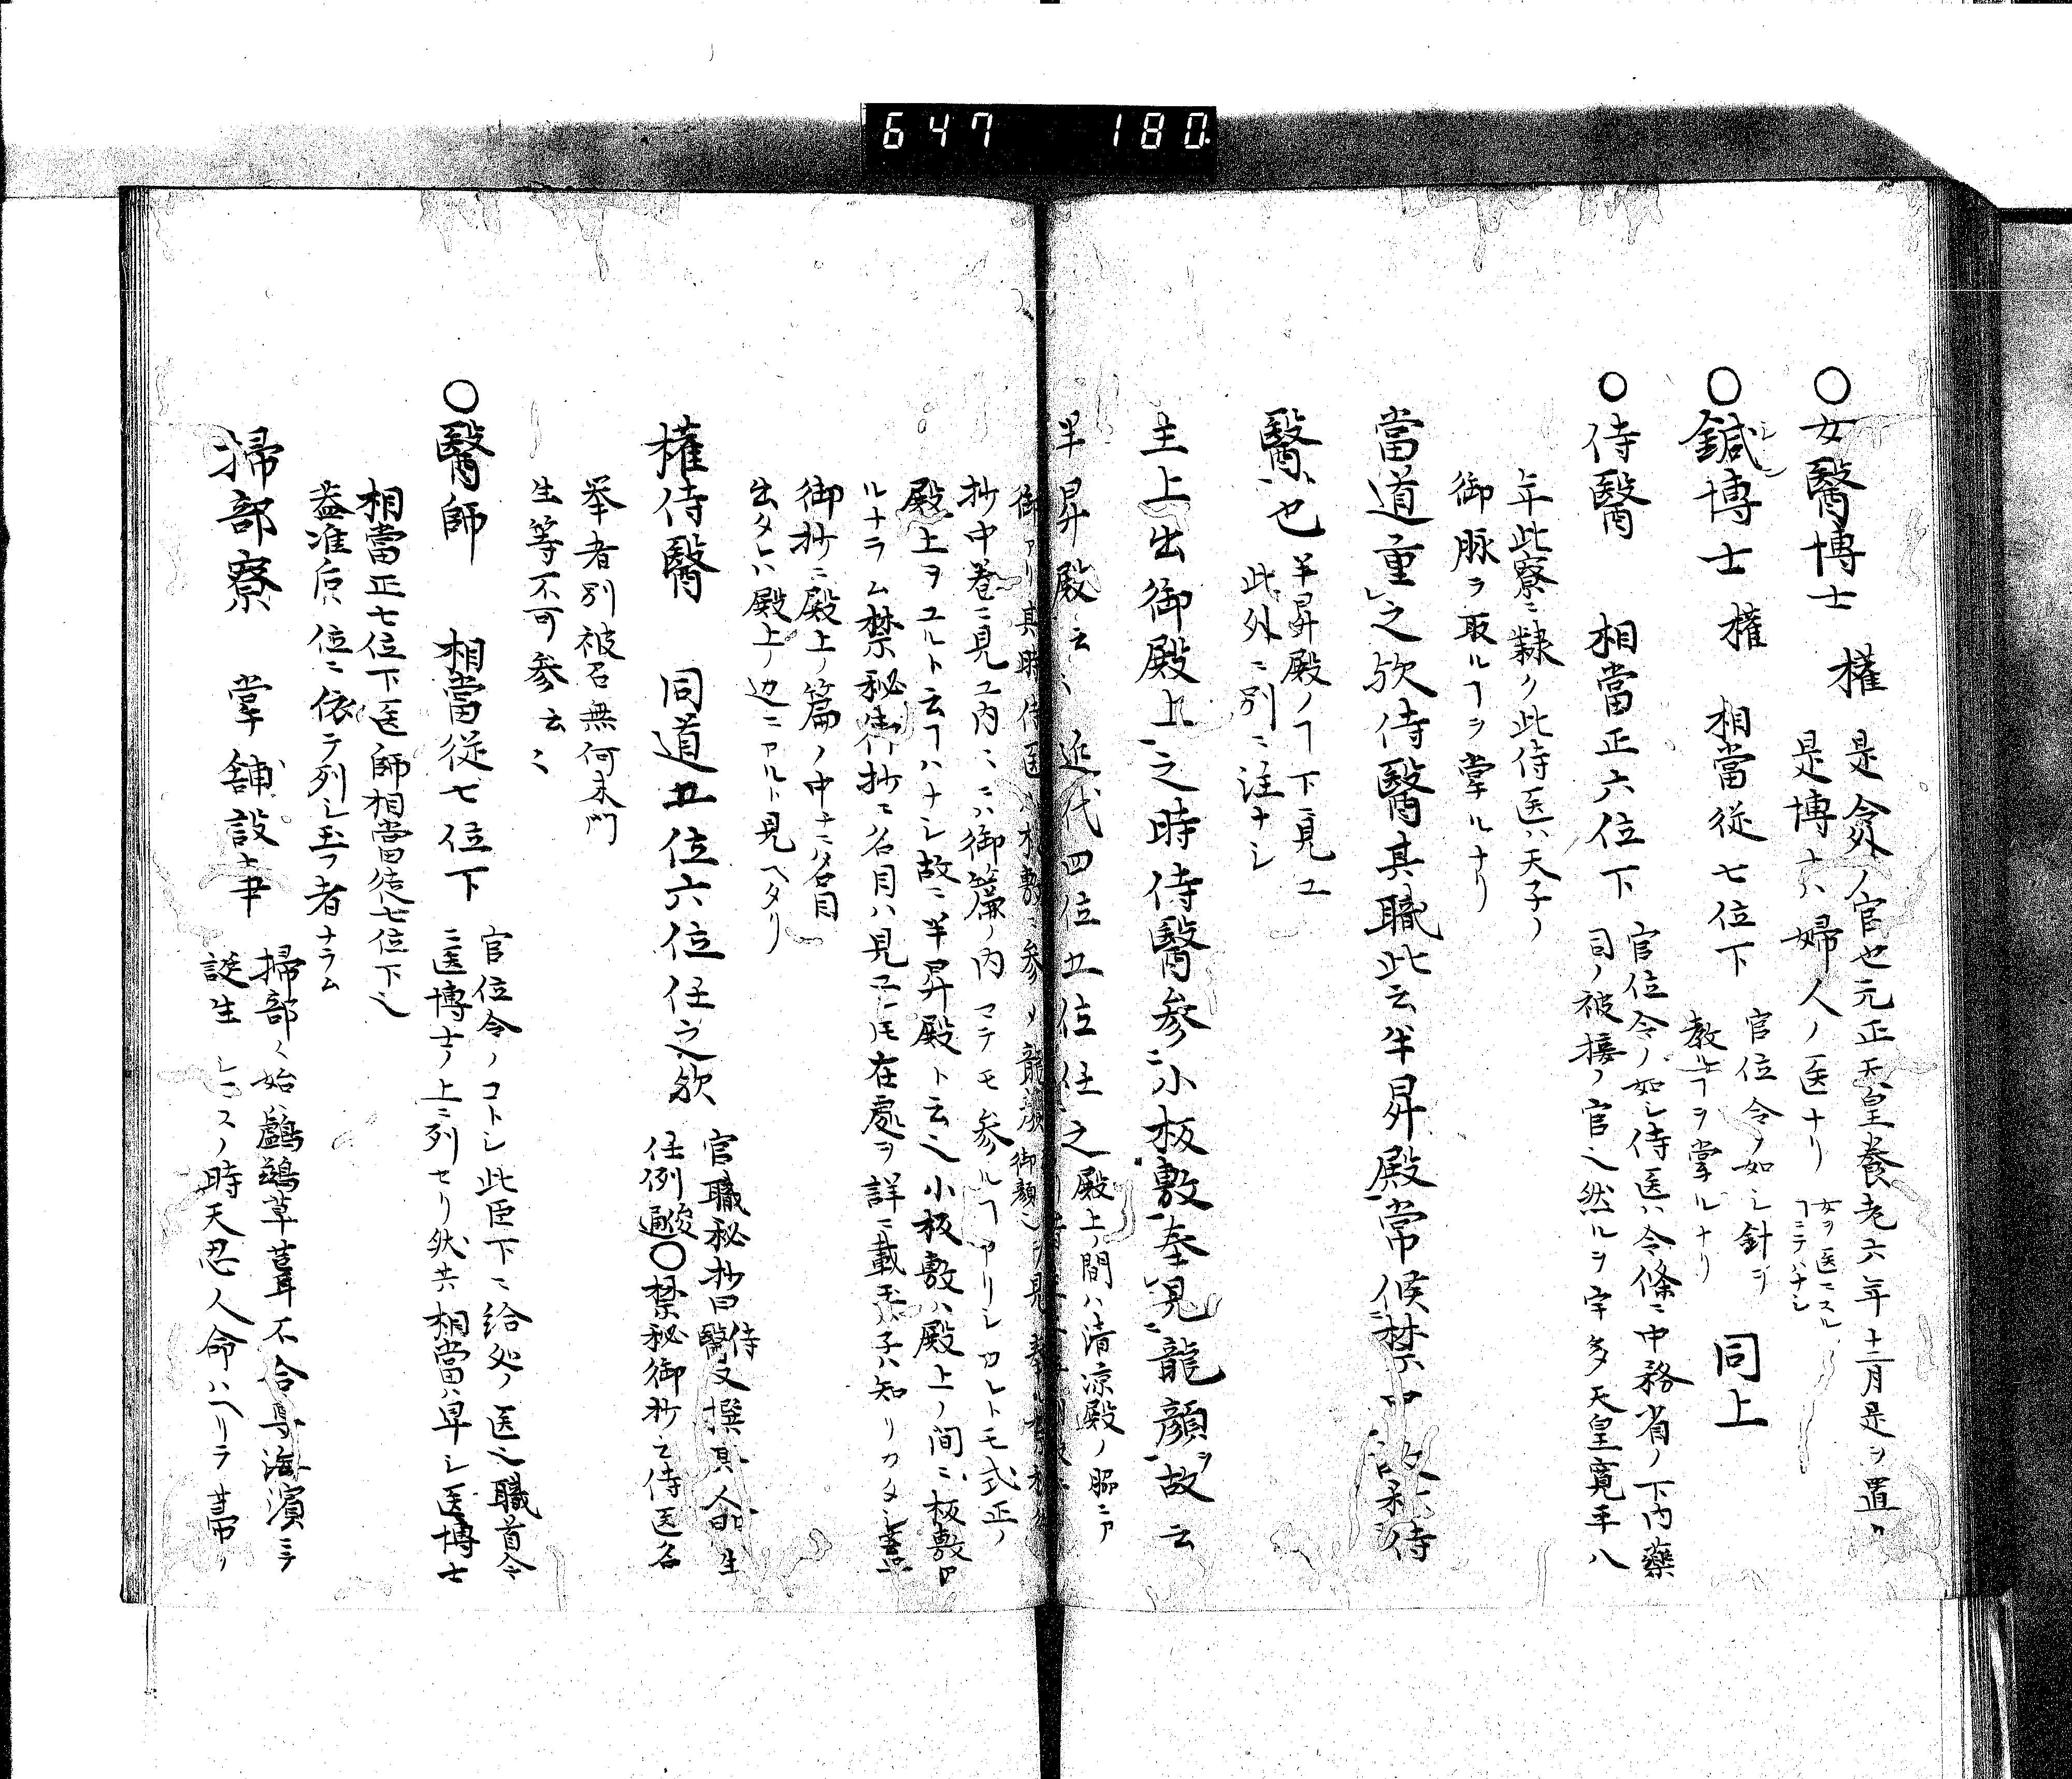 647 180
〇女醫博士 權 是令外ノ官也元正天皇養老六年十一月是ヲ置ク
是博士ハ婦人ノ医ナリ 女ヲ医ニスル
ヿニテハナシ
〇鍼博士 權 相當従七位下 官位令ノ如シ針ヲ 同上
教ルヿヲ掌ルナリ
〇侍醫 相當正六位下 官位令ノ如シ侍医ハ令條ニ中務省ノ下内藥
司ノ被接ノ官也然ルヲ宇多天皇寛平八
年此寮ニ隷ク此侍医ハ天子ノ
御脉ヲ取ルヿヲ掌ルナリ
當道重之欤侍醫其職此云半昇殿常候禁 侍
醫也 半昇殿ノヿ下ニ見ユ
此外ニ別ニ注ナシ
主上出御殿上之時侍醫參小板敷奉見龍顔ヲ故云
半昇殿云〻近代四位五位任之 殿上ノ間ハ清凉殿ノ脇ニア
御アリ其時侍医小板敷ニ参リ龍顔
抄中巻ニ見ユ内〻ニハ御簾ノ内マテモ参ルヿアリシカレトモ式正ノ
殿上ヲユルト云ヿハナシ故ニ半昇殿ト云也小板敷ハ殿上ノ間ニ板敷ア
ルナラム禁秘御抄ニ名目ハ見エ𪜈在處ヲ詳ニ載玉ハ子ハ知リカタシ
御抄ニ殿上ノ篇ノ中ニ名目
出タレハ殿上ノ辺ニアルト見ヘタリ
權侍醫 同道五位六位任之欤 官職秘抄曰侍醫又撰其人命 生
任例 〇禁秘御抄云侍医名
挙者別被召無何末門
生等不可参云〻
〇醫師 相當従七位下 官位令ノコトシ此臣下ニ給処ノ医也職員令
ニ医博士ノ上ニ列セリ然共相當ハ卑シ医博士
相當正七位下医師相當従七位下也
蓋准后ハ位ニ依テ列シ玉フ者ナラム
掃部寮 掌舖設事 掃部ハ始鸕鷀草葺不合尊海濱ニテ
誕生シマスノ時天忍人命ハヘリテ帚ノ